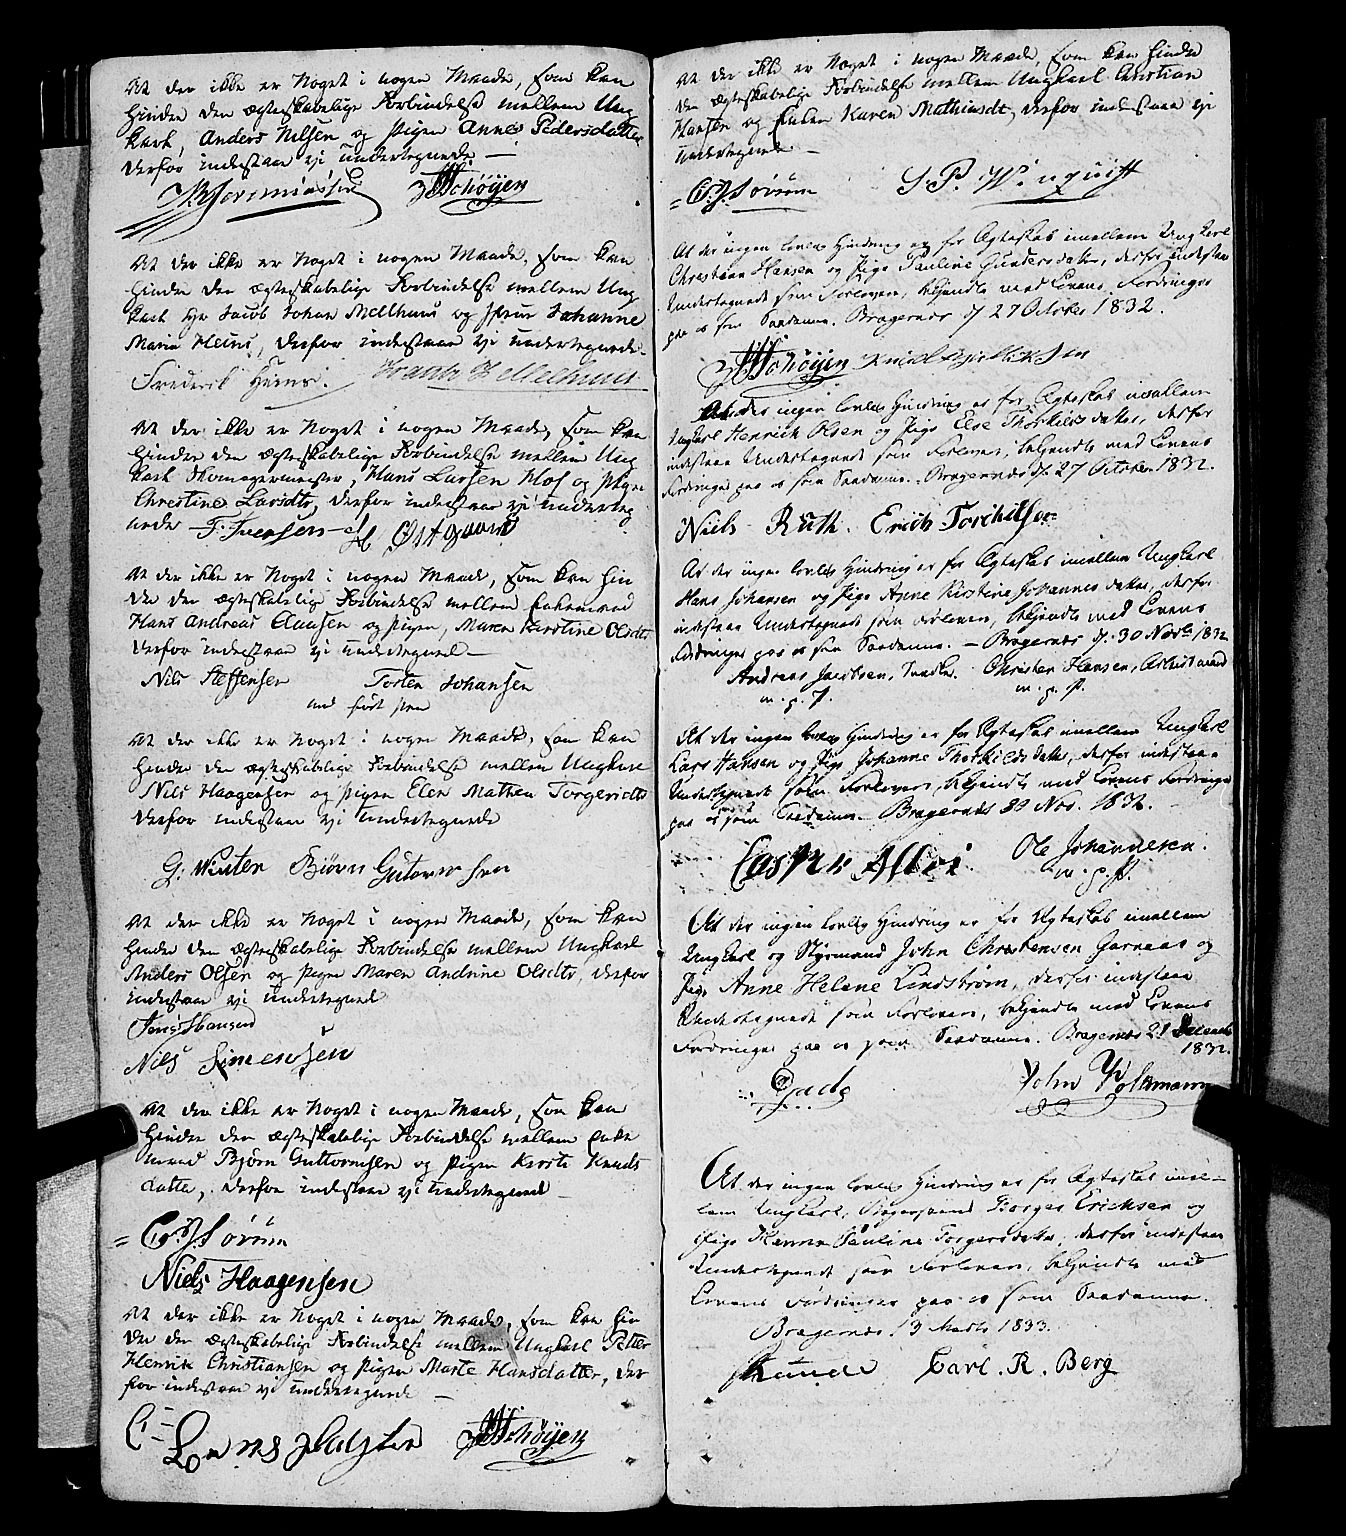 At der ikke er Noget i nogen Maade, som kan
hindre den ægteskabelige Forbindelse mellem Ung
karl, Anders Nilsen og Pigen Anne Pedersdatter
derfor indestaar vi undertegnede —
JSchøyen
At der ikke er Noget i nogen Maade, som kan
hindre den ægteskabelige Forbindelse mellem Ung
karl Hr Jacob Johan Mellhuus og Jfrue Johanne
Maria Heins, derfor indestaar vi undertegnede
Friderik Heins. Frantz Mellhuus
At der ikke er Noget i nogen Maade, som kan
hindre den ægteskabelige Forbindelse mellem Ung
karl Skomagermester, Hans Larsen Hof og Pigen
Christine Larsdtr, derfor indestaar vi underteg
nede — F. Iversen — H Østgaard
At der ikke er Noget i nogen Maade, som kan hin
dre den ægteskabelige Forbindelse mellem Enkemand
Hans Andreas Clausen og Pigen, Maren Kirstine Olsdtr
derfor indestaar vi undertegnede —
Nils Steffensen Torsten Johansen
med ført Pen
At der ikke er Noget i nogen Maade, som kan
hindre den ægteskabelige Forbindelse mellem Ungkarl
Nils Haagensen og Pigen Elen Mathea Torgersdtr
derfor indestaar vi undertegnede
G. Winter Bjørn Gutormsen
At der ikke er Noget i nogen Maade, som kan
hindre den ægteskabelige Forbindelse mellem Ungkarl
Anders Olsen og Pigen Maren Andrine Olsdtr, derfor
indestaar vi undertegnede
Nils Simensen
At der ikke er Noget i nogen Maade, som kan
hindre den ægteskabelige Forbindelse mellem Enke
mand Bjørn Guttormsen og Pigen Kirsti Knuds
datter, derfor indestaar vi undertegnede —
= C. J. Sørum
Niels Haagensen
At der ikke er Noget i nogen Maade, som kan hin
dre den ægteskabelige Forbindelse mellem Ungkarl Petter
Henrik Christiansen og Pigen Marte Hansdatter, der
for indestaar vi undertegnede —
JSchøyen
At der ikke er Noget i nogen Maade, som kan hindre
den ægteskabelige Forbindelse mellem Ungkarl Christian
Hansen og Enken Karen Mathiasdt, derfor indestaar vi
undertegnede —
= C. J. Sørum S. P. Winquist
At der ingen lovlig Hindring er for Ægteskab imellem Ungkarl
Christian Hansen og Pige Pauline Gundersdatter, derfor indestaar
Undertegnede som Forlovere, bekjendte med Lovens Fordringer
paa os som Saadanne. Bragernes d. 27 October 1832.
JSchøyen Knud
At der ingen lovlig Hindring er for Ægteskab imellem
Ungkarl Henrich Olsen og Pige Else Thorkildsdatter, derfor
indestaar Undertegnede som Forlovere, bekjendte med Lovens
Fordringer paa os som Saadanne. Bragernes d. 27 October 1832.
Niels Ruth. Erich Torkildsen
At der ingen lovlig Hindring er for Ægteskab imellem Ungkarl
Hans Johansen og Pige Anne Kirstine Johannesdatter, derfor
indestaar Undertegnede som Forlovere, bekjendte med Lovens
Fordringer paa os som Saadanne. — Bragernes d. 30 Novbr 1832
Andreas Jacobsen, Snedker. Christen Hansen, Arbeidsmand
m. p. P. m. p. P.
At der ingen lovlig Hindring er for Ægteskab imellem Ungkarl
Lars Hansen og Pige Johanne Thorkildsdatter, derfor indestaar
Undertegnede som Forlovere, bekjendte med Lovens Fordringer
paa os som Saadanne. Bragernes 30 Nov. 1832.
Ole Johannesen.
m. p. P.
At der ingen lovlig Hindring er for Ægteskab imellem
Ungkarl og Styrmand John Christensen Garnaas og
Pige Anne Helene Lindstrøm, derfor indestaar
Undertegnede som Forlovere, bekjendte med Lovens
Fordringer paa os som Saadanne. Bragernes 21 Decemb
1832.
Gade John Volkmann
At der ingen lovlig Hindring er for Ægteskab imel—
lem Ungkarl, Torger Erichsen og
Pige Pauline Torgersdatter, derfor indestaar
Undertegnede som Forlovere, bekjendte med
Lovens Fordringer paa os som Saadanne.
Bragernes 13 Marts 1833.
Carl. R. Berg